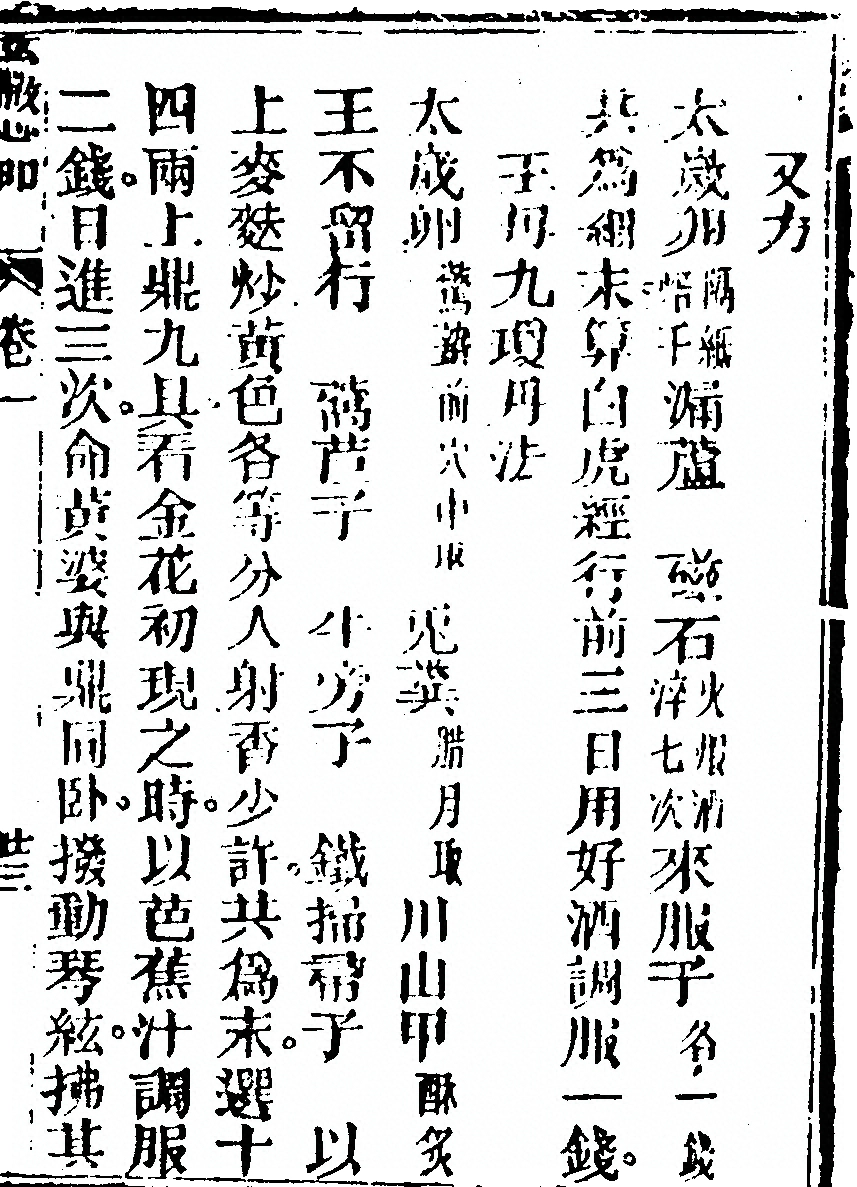 又方
太歲卵隔紙焙干漏蘆 磁石火煅酒淬七次來服子各一錢
共爲細末算白虎經行前三日用好酒調服一錢。
王母九瓊丹法
太歲卵驚蟄前穴中取 兎糞臘月取川山甲酥炙
王不留行 萵苣子 牛旁子 鐵掃帚子 以
上麥麩炒黃色各等分人射香少許。共爲末。選十
四兩上鼎九具。看金花初現之時。以芭蕉汁調服
二錢。日進三次。命黃婆與鼎同卧。撥動琴絃。拂其
卷一
廿三